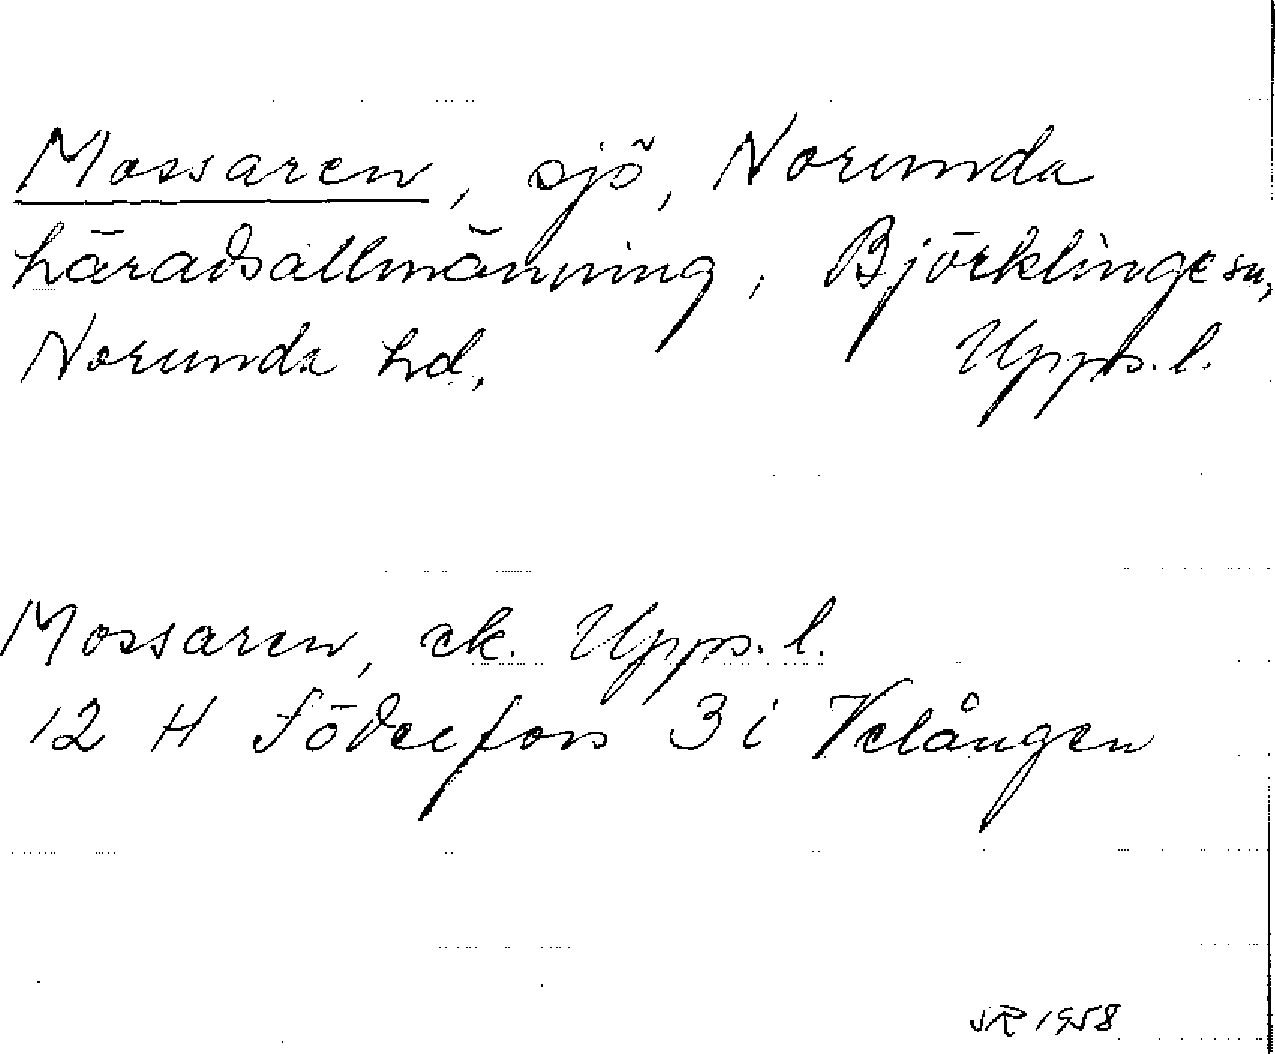 Mossaren, sjö, Norunda
häradsallmänning, Björklinge sn,
Norunda hd, Upps. l.
Mossaren, ek. Upps. l.
12 H Söderfors 3 i Velången
JR 1958